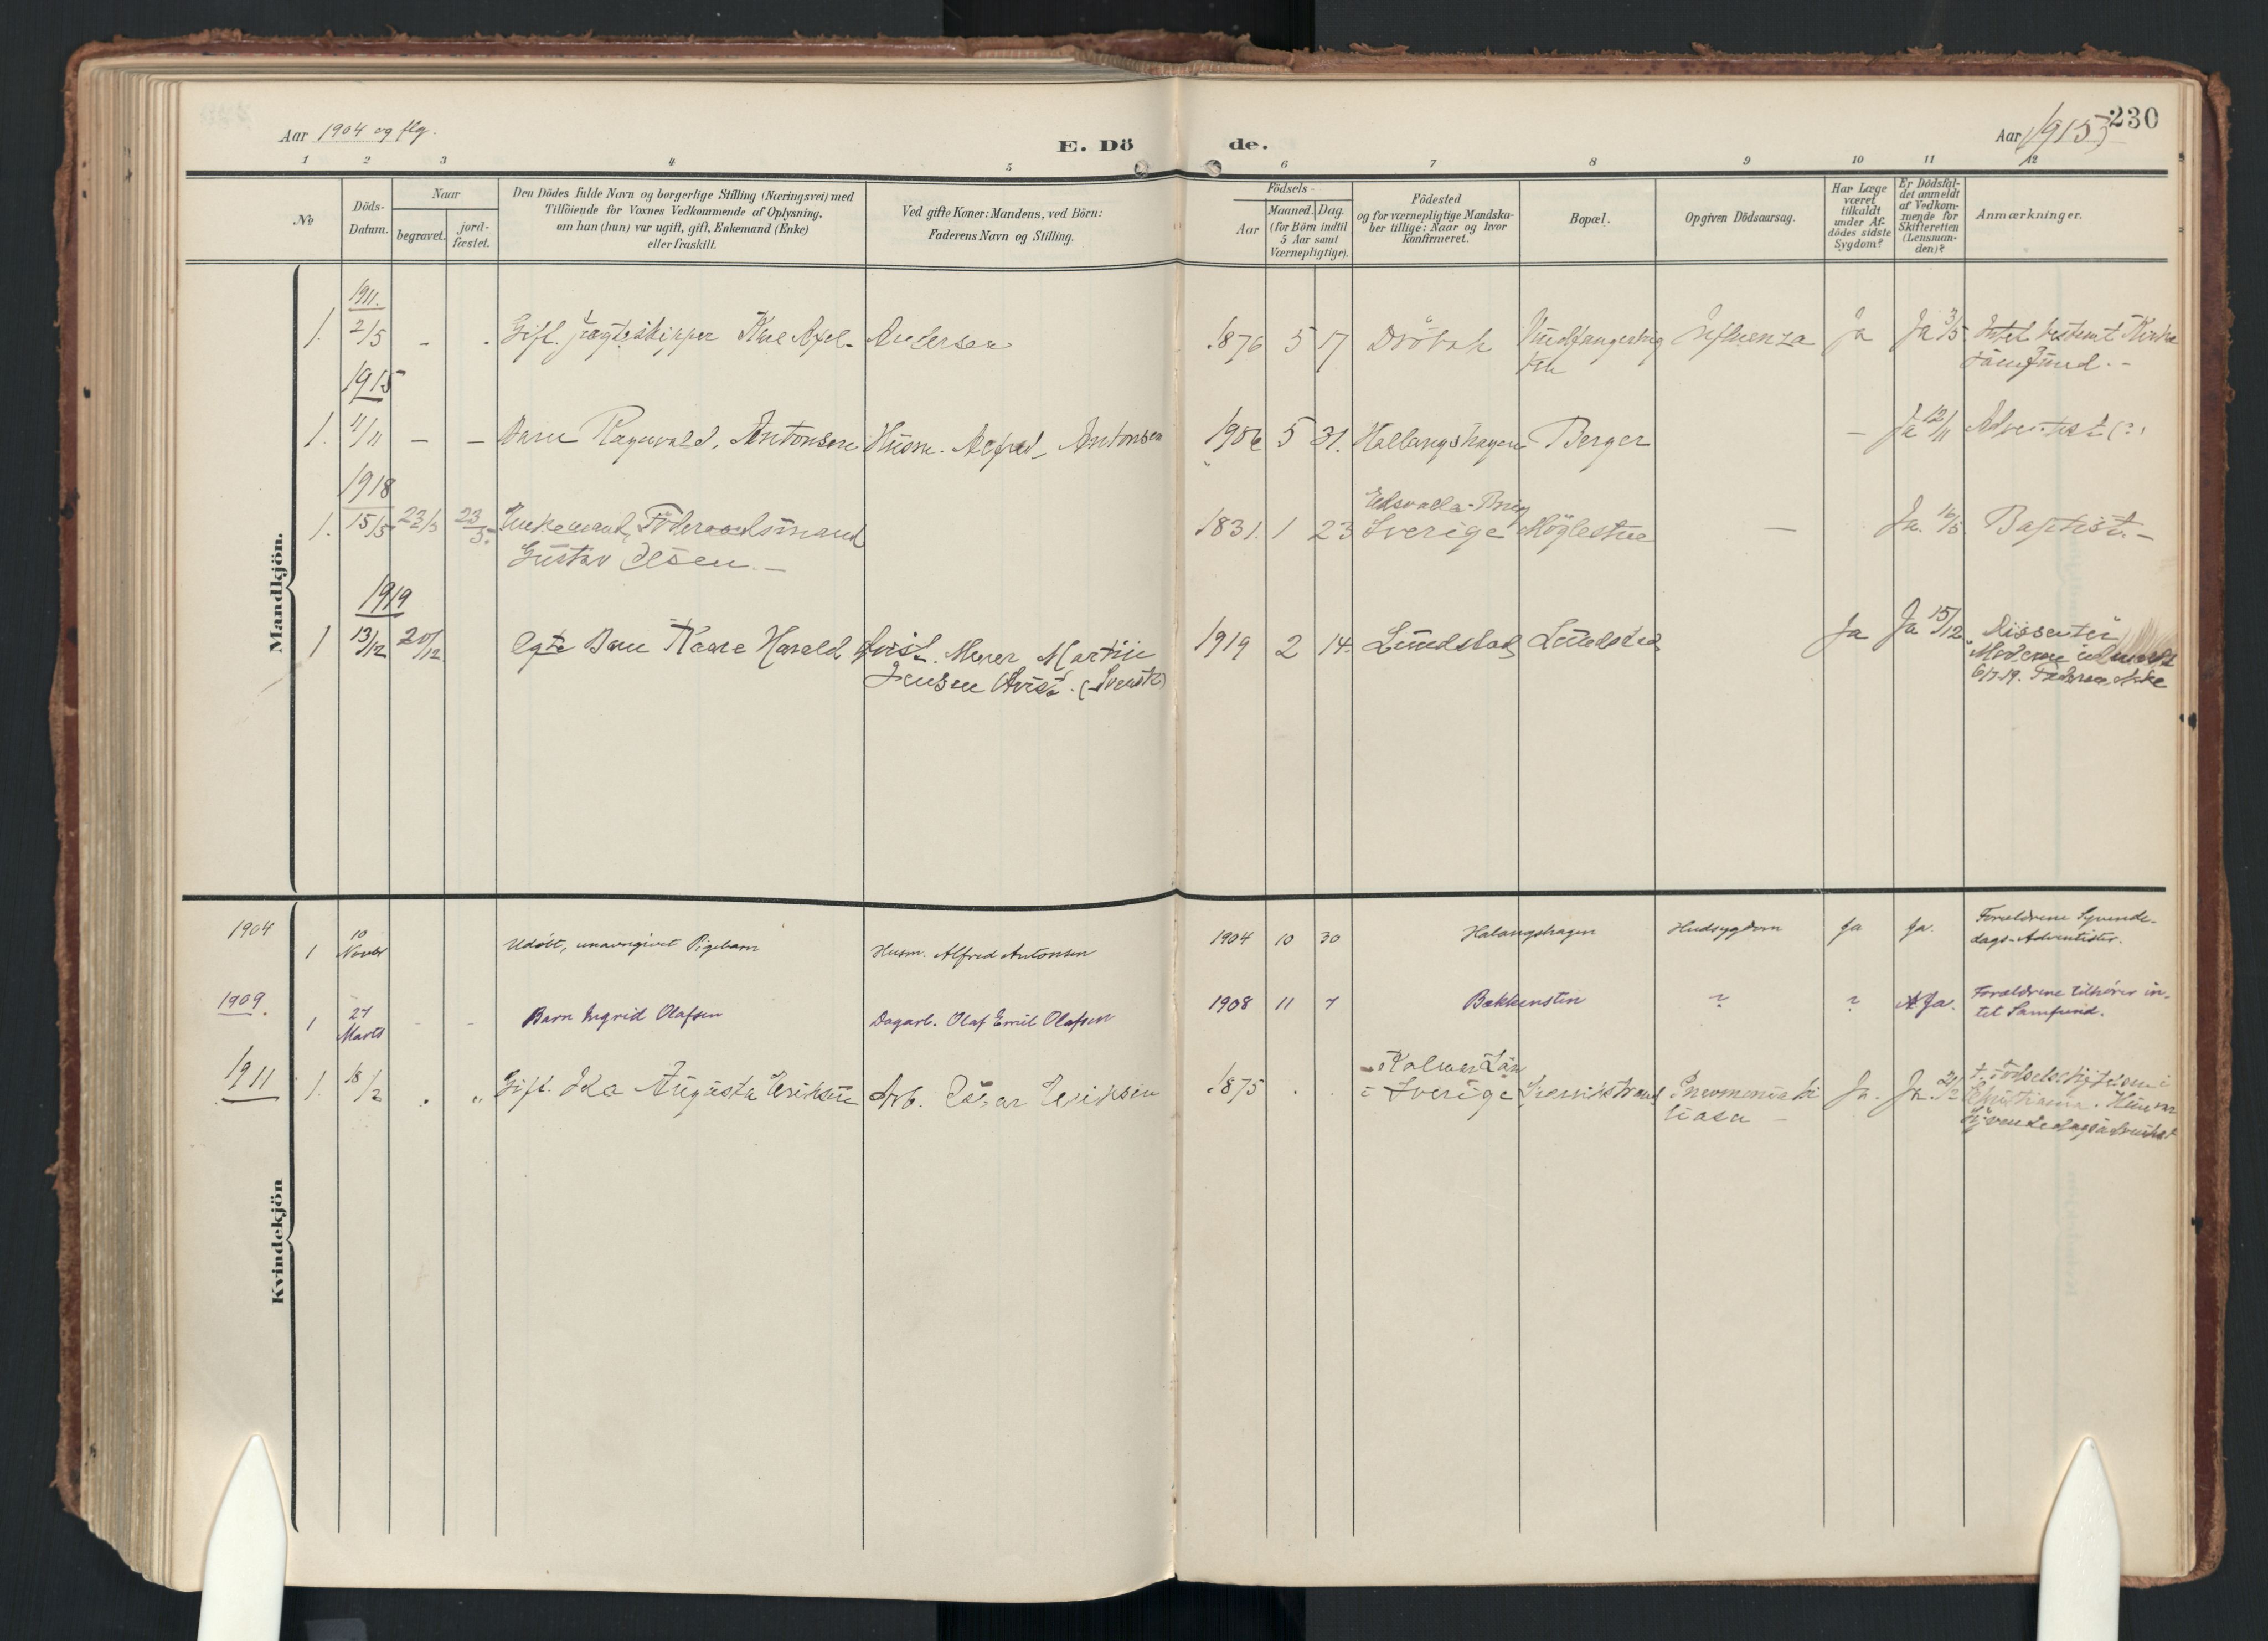 Aar 1904 og flg.
E. Döde.
Aar (1915) 230
1 2 3 4 5 6 7 8 9 10 11 12
№
Döds-Datum.
Naar
begravet.
jordfæstet.
Den Dödes fulde Navn og borgerlige Stilling (Næringsvei) med
Tilföiende for Voxnes Vedkommende af Oplysning,
om han (hun) var ugift, gift, Enkemand (Enke)
eller fraskilt.
Ved gifte Koner: Mandens, ved Börn:
Faderens Navn og Stilling.
Födsels-
Aar
Maaned. Dag.
(for Börn indtil
5 Aar samt
Værnepligtige).
Födested
og for værnepligtige Mandska-
ber tillige: Naar og hvor
konfirmeret.
Bopæl.
Opgiven Dödsaarsag.
Har Læge
været
tilkaldt
under Af-
dödes sidste
Sygdom?
Er Dödsfal-
det anmeldt
af Vedkom-
mende for
Skifteretten
(Lensman-
den)?
Anmærkninger.
Mandkjön.
1911.
1. 2/5 - - Gift. Jægteskipper Karl Axel Andersen 1876 5 17 Dröbak Influenza Ja Ja 3/5 Intet bestemt Kirke
samfund. -
1915
1. 11/11 - - Barn Ragnvald, Antonsen Husm. Alfred Antonsen 1906 5 31. Hallangshagen Berger - Ja 12/11 Adventist (?)
1918
1. 15/5 23/5 23/5. Enkemand, Föderaadsmand
Gustav Olsen. -
1831. 1 23 Sverige Höglestue - Ja. 16/5. Baptist. -
1919
1 13/12 20/12 Egte Barn Kaare Harald Qvist. Murer Martin
Jensen Qvist. (Svensk)
1919 2 14. Lundstad Lundstad Ja Ja 15/12 "Dissenter"
Moderen udmeldt
6/7 19. Faderen ikke
Kvindekjön
1904 1 10 Novbr Udöbt, unavngivet Pigebarn Husm. Alfred Antonsen 1904 10 30 Halangshagen Hudsygdom Ja Ja. Forældrene Syvende-
dags-Adventister.
1909. 1 27 Marts - - Barn Ingrid Olafsen Dagarb. Olaf Emil Olafsen 1908 11 7 Bækkensten ? ? Ja. Forældrene tilhører in-
tet Samfund.
1911 1. 18/2 . " Gift. Ida Augusta Eriksen Arb. Oskar Eriksen 1875 . . Kalmar Län
i Sverige Ja. Ja. 21/2
Kristiania. Hun var
Syvendedagsadventist